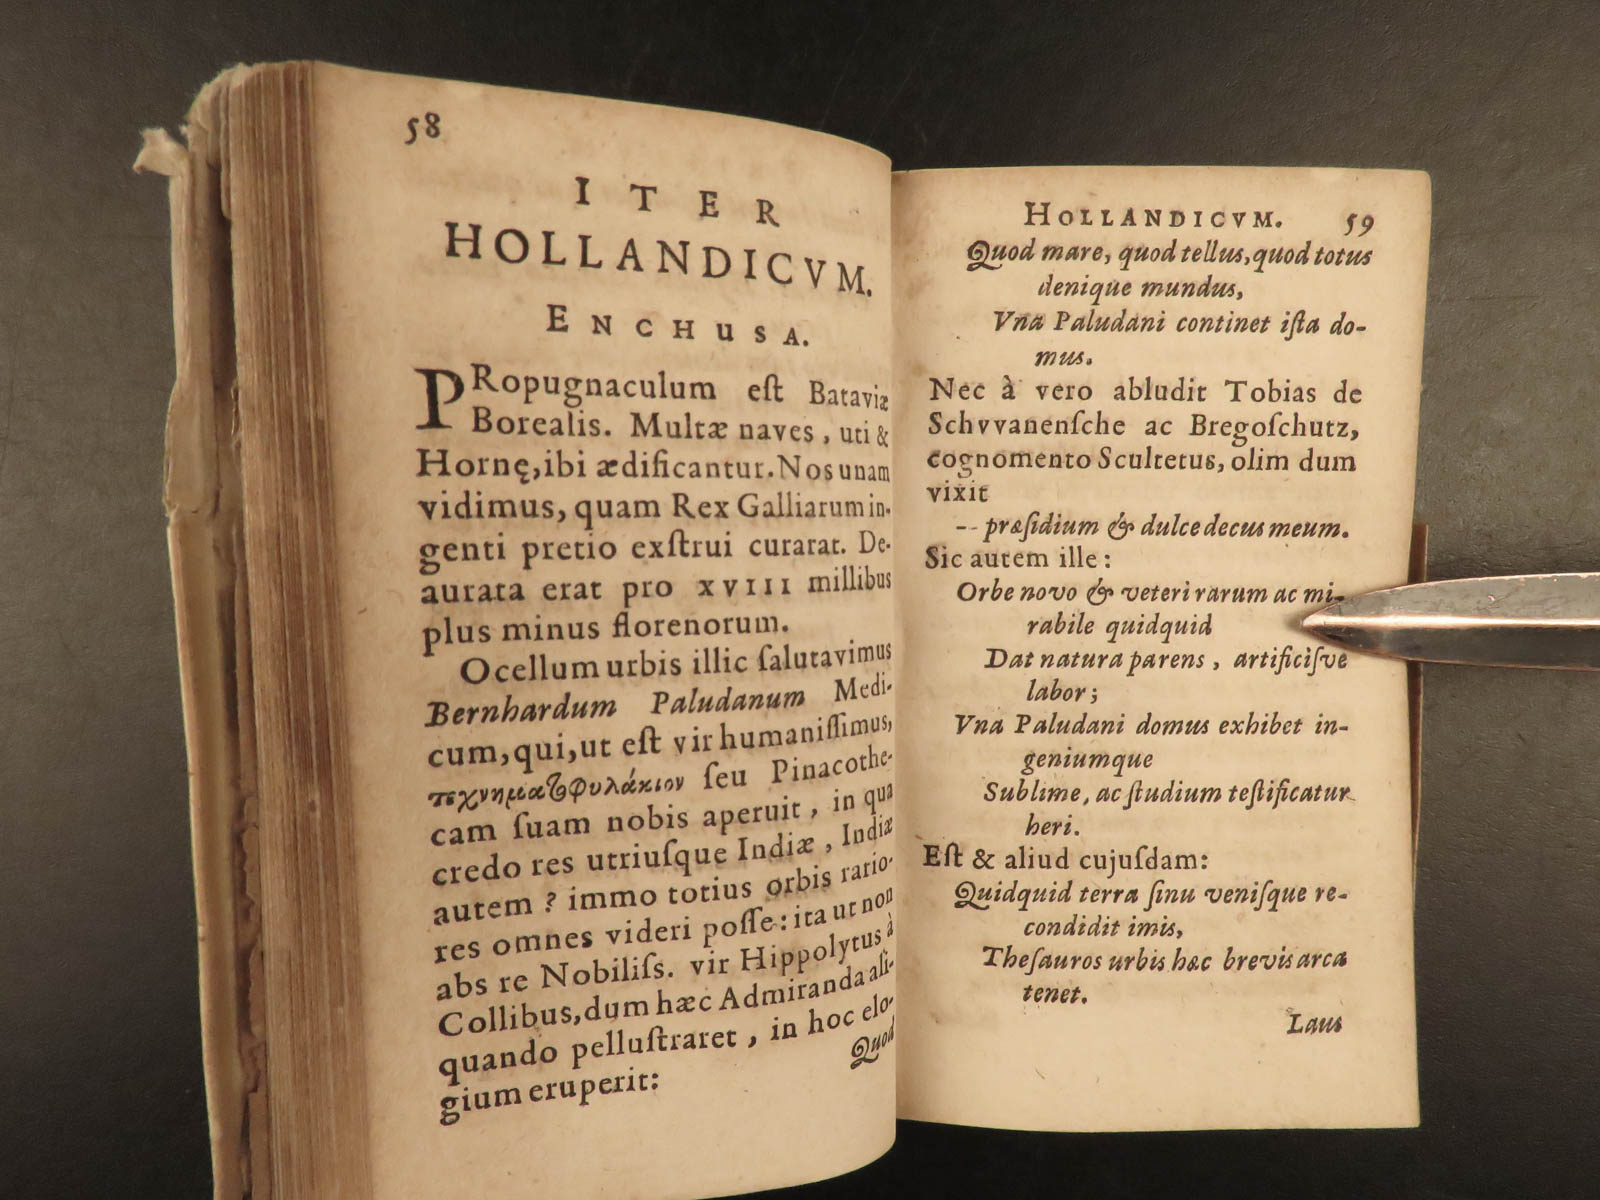 58
ITER
HOLLANDICVM.
ENCHUSA.
PRopugnaculum eſt Bataviæ
Borealis. Multæ naves, uti &
Hornę, ibi ædificantur. Nos unam
vidimus, quam Rex Galliarum in-
genti pretio exſtrui curarat. De-
aurata erat pro XVIII millibus
plus minus florenorum.
Ocellum urbis illic ſalutavimus
Bernhardum Paludanum Medi-
cum, qui, ut eſt vir humaniſſimus,
τεχνηματοφυλάκιον ſeu Pinacothe-
cam ſuam nobis aperuit, in qua
credo res utriuſque Indiæ, Indiæ
autem? immo totius orbis rario-
res omnes videri poſſe: ita ut non
abs re Nobiliſs. vir Hippolytus à
Collibus, dum hæc Admiranda ali-
quando pelluſtraret, in hoc elo-
gium eruperit:
Quod
HOLLANDICVM. 59
Quod mare, quod tellus, quod totus
denique mundus,
Vna Paludani continet iſta do-
mus.
Nec à vero abludit Tobias de
Schvvanenſche ac Bregoſchutz,
cognomento Scultetus, olim dum
vixit
-- præſidium & dulce decus meum.
Sic autem ille:
Orbe novo & veteri rarum ac mi-
rabile quidquid
Dat natura parens, artificiſve
labor;
Vna Paludani domus exhibet in-
geniumque
Sublime, ac ſtudium teſtificatur
heri.
Eſt & aliud cujuſdam:
Quidquid terra ſinu veniſque re-
condidit imis,
Theſauros urbis hæc brevis arca
tenet.
Laus